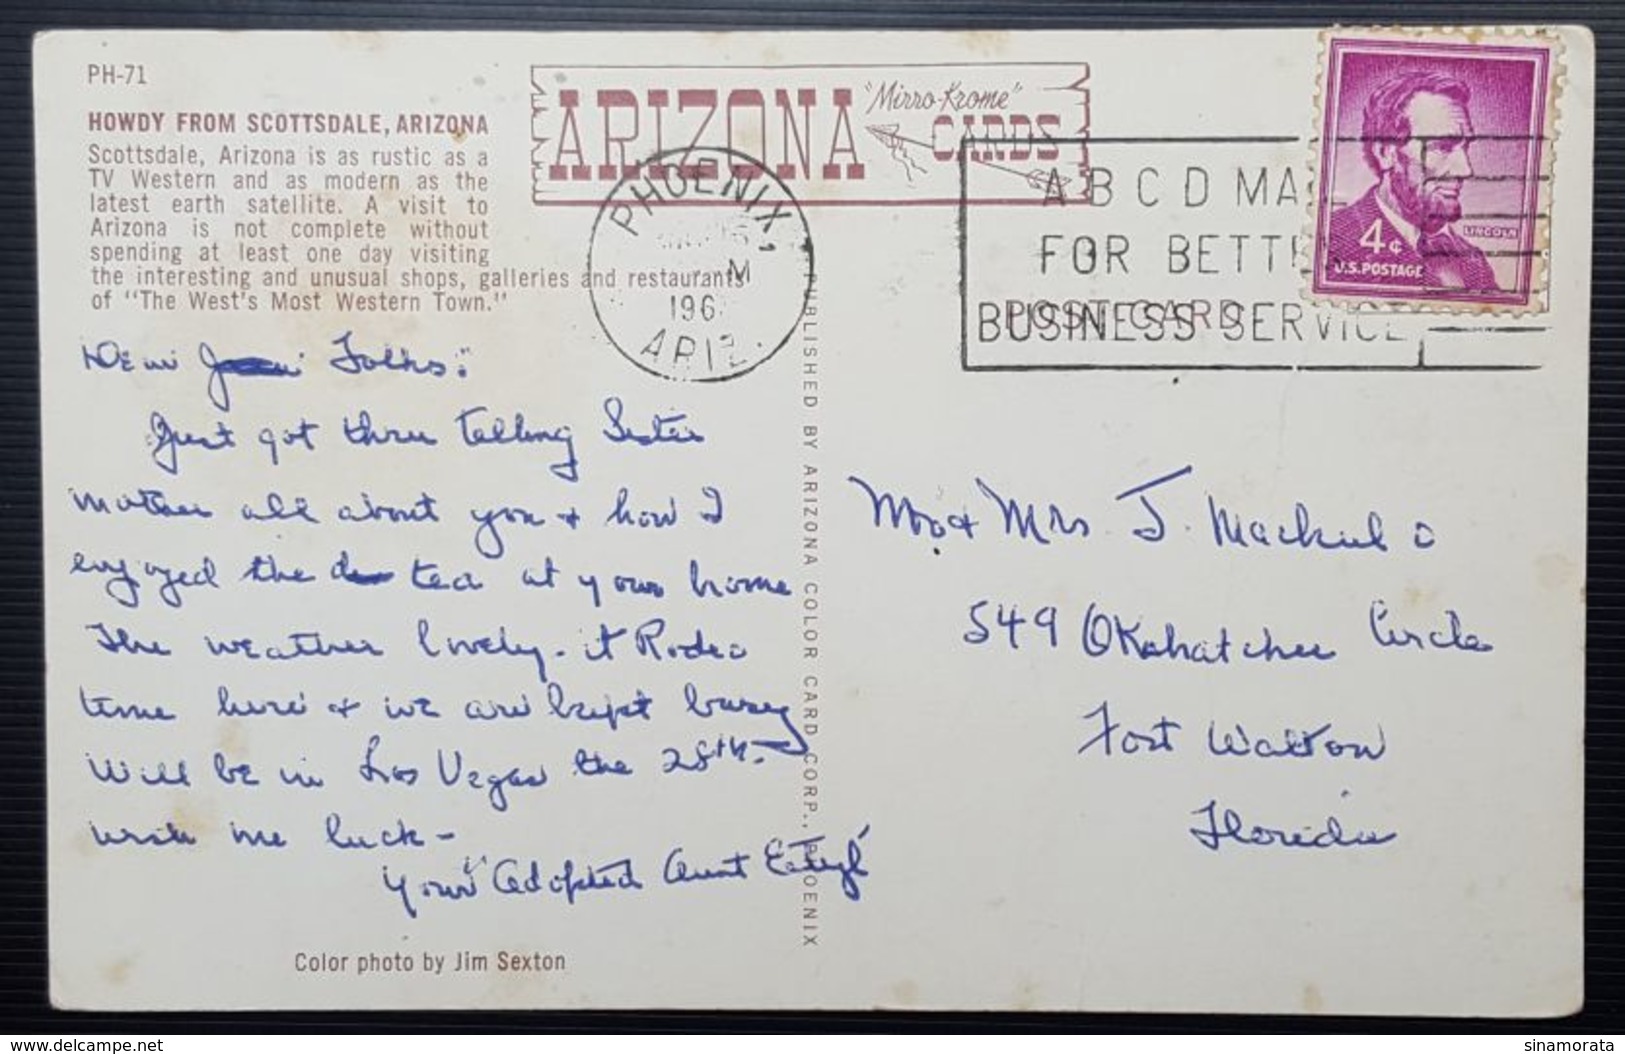 PH-71
HOWDY FROM SCOTTSDALE, ARIZONA
Scottsdale, Arizona is as rustic as a
TV Western and as modern as the
latest earth satellite. A visit to
Arizona is not complete without
spending at least one day visiting
the interesting and unusual shops, galleries and restaurants
of "The West's Most Western Town."
ARIZONA "Mirro-Krome" CARDS
PHOENIX,
M
196
ARIZ.
A B C D MAIL
FOR BETTER
BUSINESS SERVICE
POST CARD
4¢
LINCOLN
U.S. POSTAGE
Dear Folks:
Just got thru telling Sister
mother all about you & how I
enjoyed the tea at your home
The weather lovely - it Rodeo
time here & we are kept busy
Will be in Las Vegas the 28th -
wish me luck -
Your "Adopted Aunt
PUBLISHED BY ARIZONA COLOR CARD CORP., PHOENIX
Mr & Mrs J.
549 Okahatchee Circle
Fort Walton
Florida
Color photo by Jim Sexton
delcampe.net
sinamorata